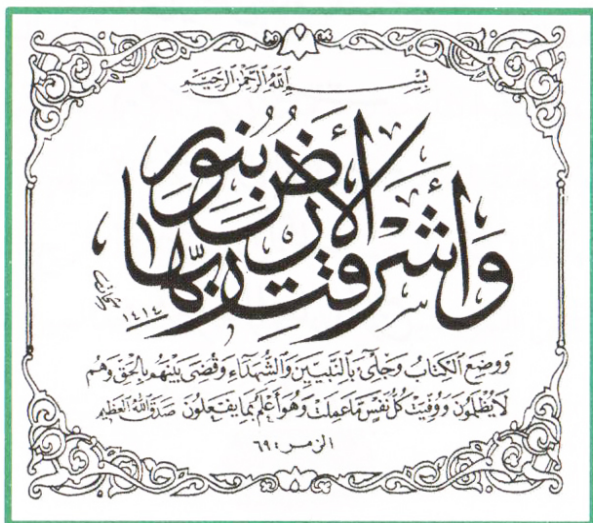 بِسْمِ اللهِ الرَّحْمٰنِ الرَّحِيمِ
وَأَشْرَقَتِ الْأَرْضُ بِنُورِ رَبِّهَا
١٤١٤
وَوُضِعَ الْكِتَابُ وَجِآىءَ بِالنَّبِيِّينَ وَالشُّهَدَآءِ وَقُضِيَ بَيْنَهُم بِالْحَقِّ وَهُمْ
لَا يُظْلَمُونَ وَوُفِّيَتْ كُلُّ نَفْسٍ مَا عَمِلَتْ وَهُوَ أَعْلَمُ بِمَا يَفْعَلُونَ صَدَقَ اللهُ الْعَظِيمُ
الزمر : ٦٩